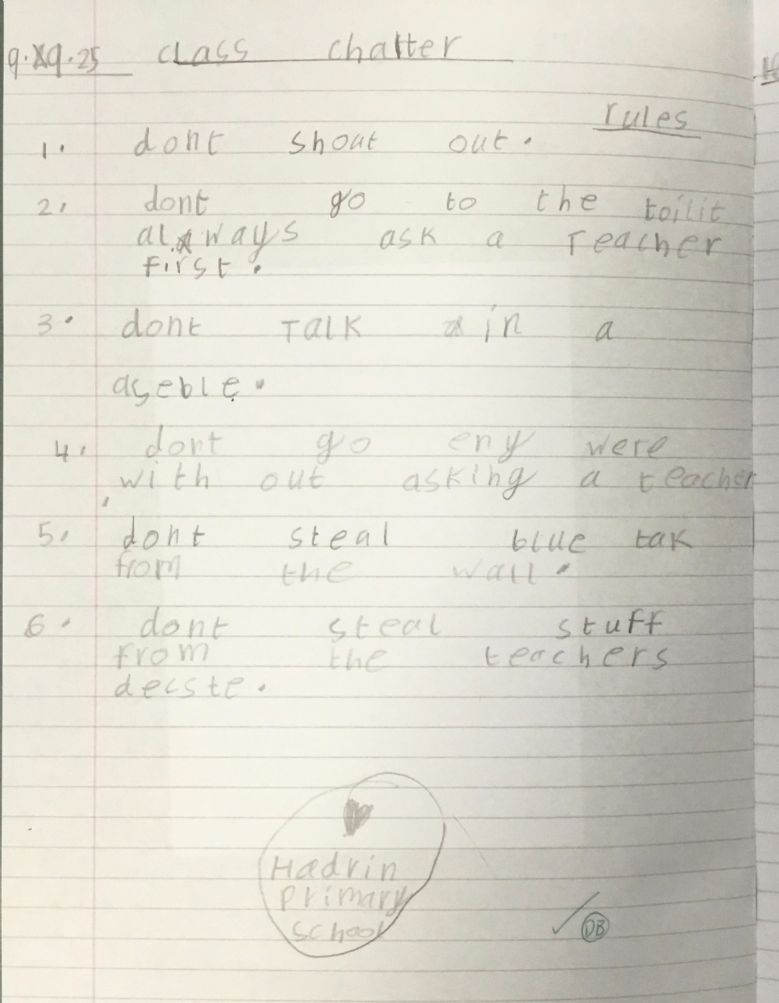 9.9.25 class chatter
rules
1. dont shout out.
2. dont go to the toilit
always ask a Teacher
first.
3. dont Talk in a
aseble.
4. dont go eny were
with out asking a teacher
5. dont steal blue tak
from the wall.
6. dont steal stuff
from the teachers
decste.
Hadrin
primary
school
DB